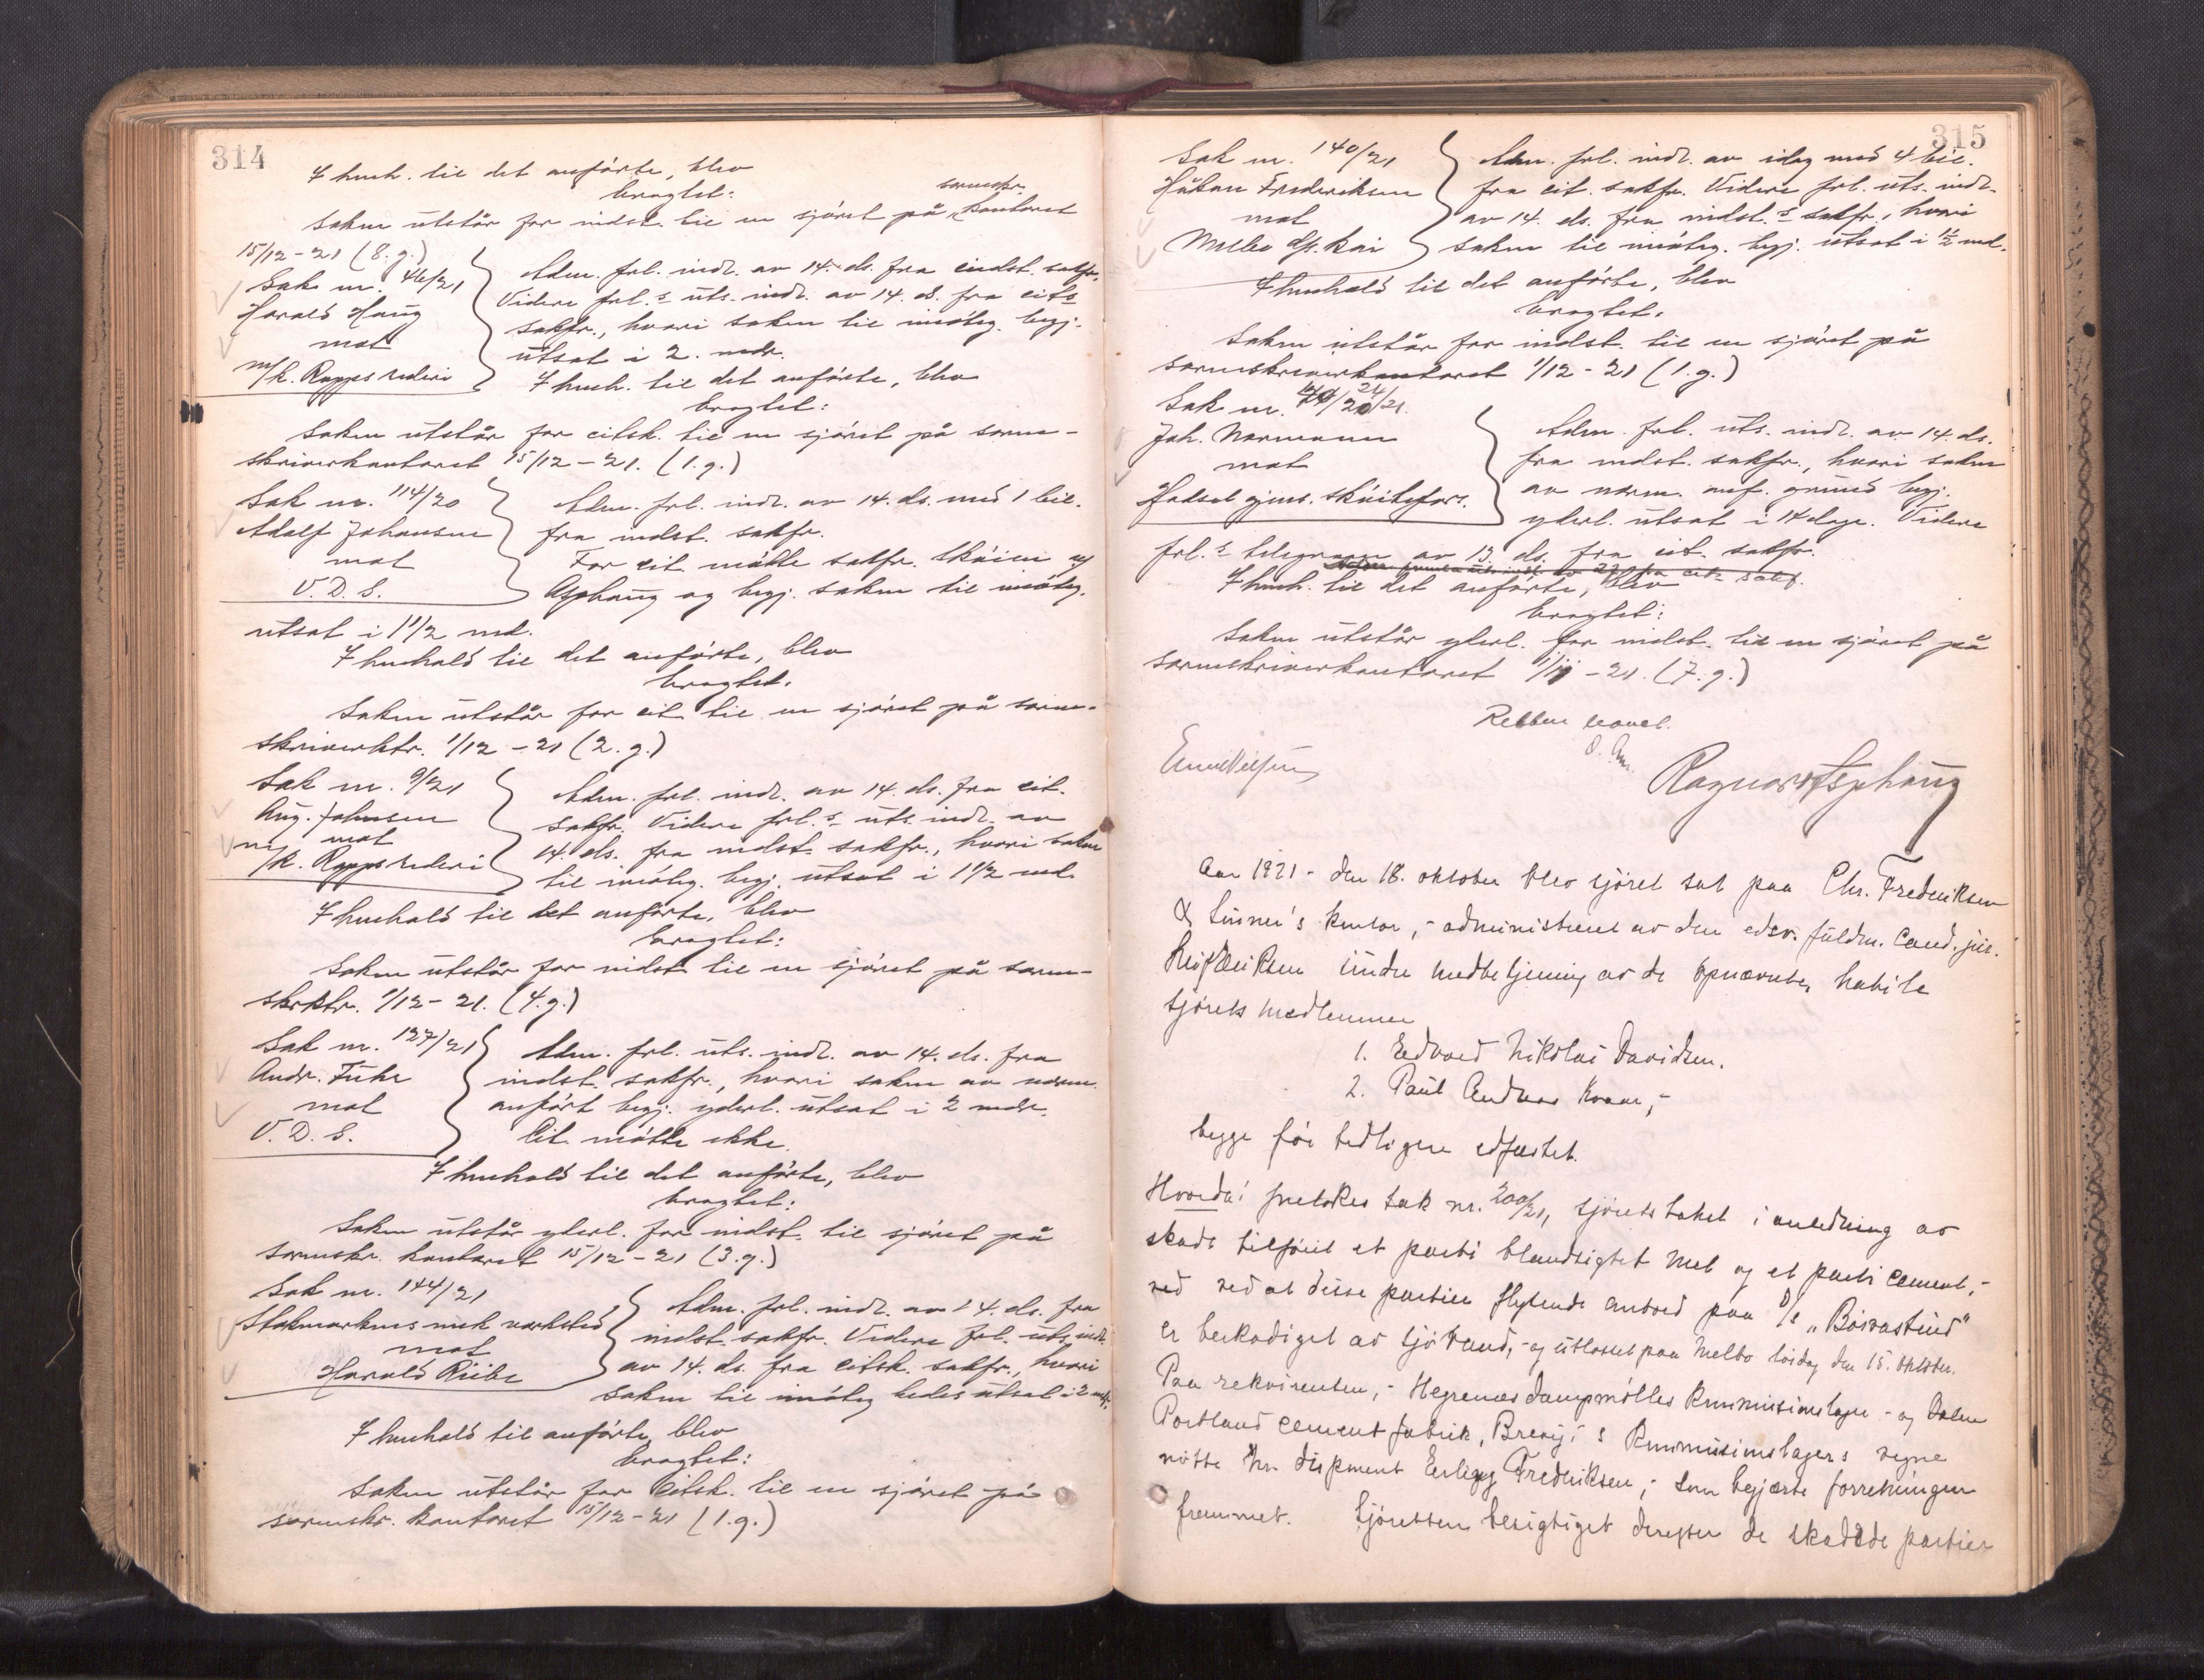 314
I henh. til det anförte, blev
bragtet:
sornskr.
Saken utstår for indst. til en sjöret på kontoret
15/12-21 (8. g.)
Sak nr. 46/21
Harald Haug
mot
m/k. Rapps rederi
Adm. frl. indl. av 14. ds. fra indst. sakfr.
Videre frl. s uts. indl. av 14. ds. fra cits
sakfr., hvori saken til imøteg. begj.
utsat i 2. mdr.
I henh. til det anförte, blev
bragtet:
Saken utstår for citsk. til en sjöret på soren-
skriverkontoret 15/12-21. (1. g.)
Sak nr. 114/20
Adolf Johansen
mot
V. D. S.
Adm. frl. indl. av 14. ds. med 1 bil.
fra indst. sakfr.
For cit. mötte sakfr. Sköien v/
Asphaug og begj. saken til imøteg.
utsat i 1 1/2 md.
I henhold til det anförte, blev
bragtet:
Saken utstår for cit. til en sjöret på soren-
skriverktr. 1/12-21 (2. g.)
Sak nr. 9/21
Aug. Johnsen
mot
m/k. Rapps rederi
Adm. frl. indl. av 14. ds. fra cit.
sakfr. Videre frl. s uts. indl. av
14. ds. fra indst. sakfr., hvori saken
til imøteg. begj. utsat i 1 1/2 md.
I henhold til det anförte, blev
bragtet:
Saken utstår for indst. til en sjöret på soren-
skrktr. 1/12-21. (4. g.)
Sak nr. 127/21
Andr. Führ
mot
V. D. S.
Adm. frl. uts. indl. av 14. ds. fra
indst. sakfr., hvori saken av nærm.
anfört begj. yderl. utsat i 2 mdr.
Cit. mötte ikke.
I henhold til det anförte, blev
bragtet:
Saken utstår yderl. for indst. til sjöret på
sornskr. kontoret 15/12-21 (3. g.)
Sak nr. 144/21
Stokmarknes mek verksted
mot
Harald Riibe
Adm. frl. indl. av 14. ds. fra
indst. sakfr. Videre frl. uts. indl.
av 14. ds. fra citsk. sakfr., hvori
saken til imøteg bedes utsat i 2 mdr.
I henhold til anförte, blev
bragtet:
Saken utstår for citsk. til en sjöret på
sornskr. kontoret 15/12-21 (1. g.)
315
Sak nr. 140/21
Håkon Frederiksen
mot
Melbo Df. kai
Adm. frl. indl. av idag med 4 bil.
fra cit. sakfr. Videre frl. uts. indl.
av 14. ds. fra indst. s sakfr., hvori
saken til imøteg. begj. utsat i 1 1/2 md.
I henhold til det anförte, blev
bragtet:
Saken utstår for indst. til en sjöret på
sorenskriverkontoret 1/12-21 (1. g.)
Sak nr. 24/21.
Joh. Normann
mot
Hadsel gjens. skibsfors.
Adm. frl. uts. indl. av 14. ds.
fra indst. sakfr., hvori saken
av nærm. anf. grund begj.
yderl. utsat i 14 dage. Videre
frl. s telegram av 13. ds. fra cit. sakfr.
I henh. til det anförte, blev
bragtet:
Saken utstår yderl. for indst. til en sjöret på
sorenskriverkontoret 1/11-21. (7. g.)
Retten hævet.
Ragnar Asphaug
Aar 1921 - den 18. oktober blev sjöret sat paa Chr. Frederiksen
& Sönner's kontor, - administreret av den edsv. fuldm. Cand. jur.
under medbetjening av de opnævnte, habile
sjörets medlemmer
1. Edvard Nikolai Davidsen.
2. Paul Andreas Kvaar, -
begge för tedligere edfæstet.
Hvorda: foretokes sak nr. 200/21, sjöretstaket i anledning av
skade tilföiet et parti blandsigtet mel og et parti cement, -
ved ved at disse partier flytende ombord paa D/S „Bör­vastind"
er beskadiget av sjövand, - og utlosset paa Melbo lördag den 15. oktober.
Paa rekvirenten, - Hegrenæs dampmölles kommisionslager - og Dalen
Portland cement fabrik, Brevig's kommisionslagers vegne
mötte hr. disponent Erling Frederiksen, - som begjærte forretningen
fremmet. Sjöretten besigtiget derefter de skadede partier